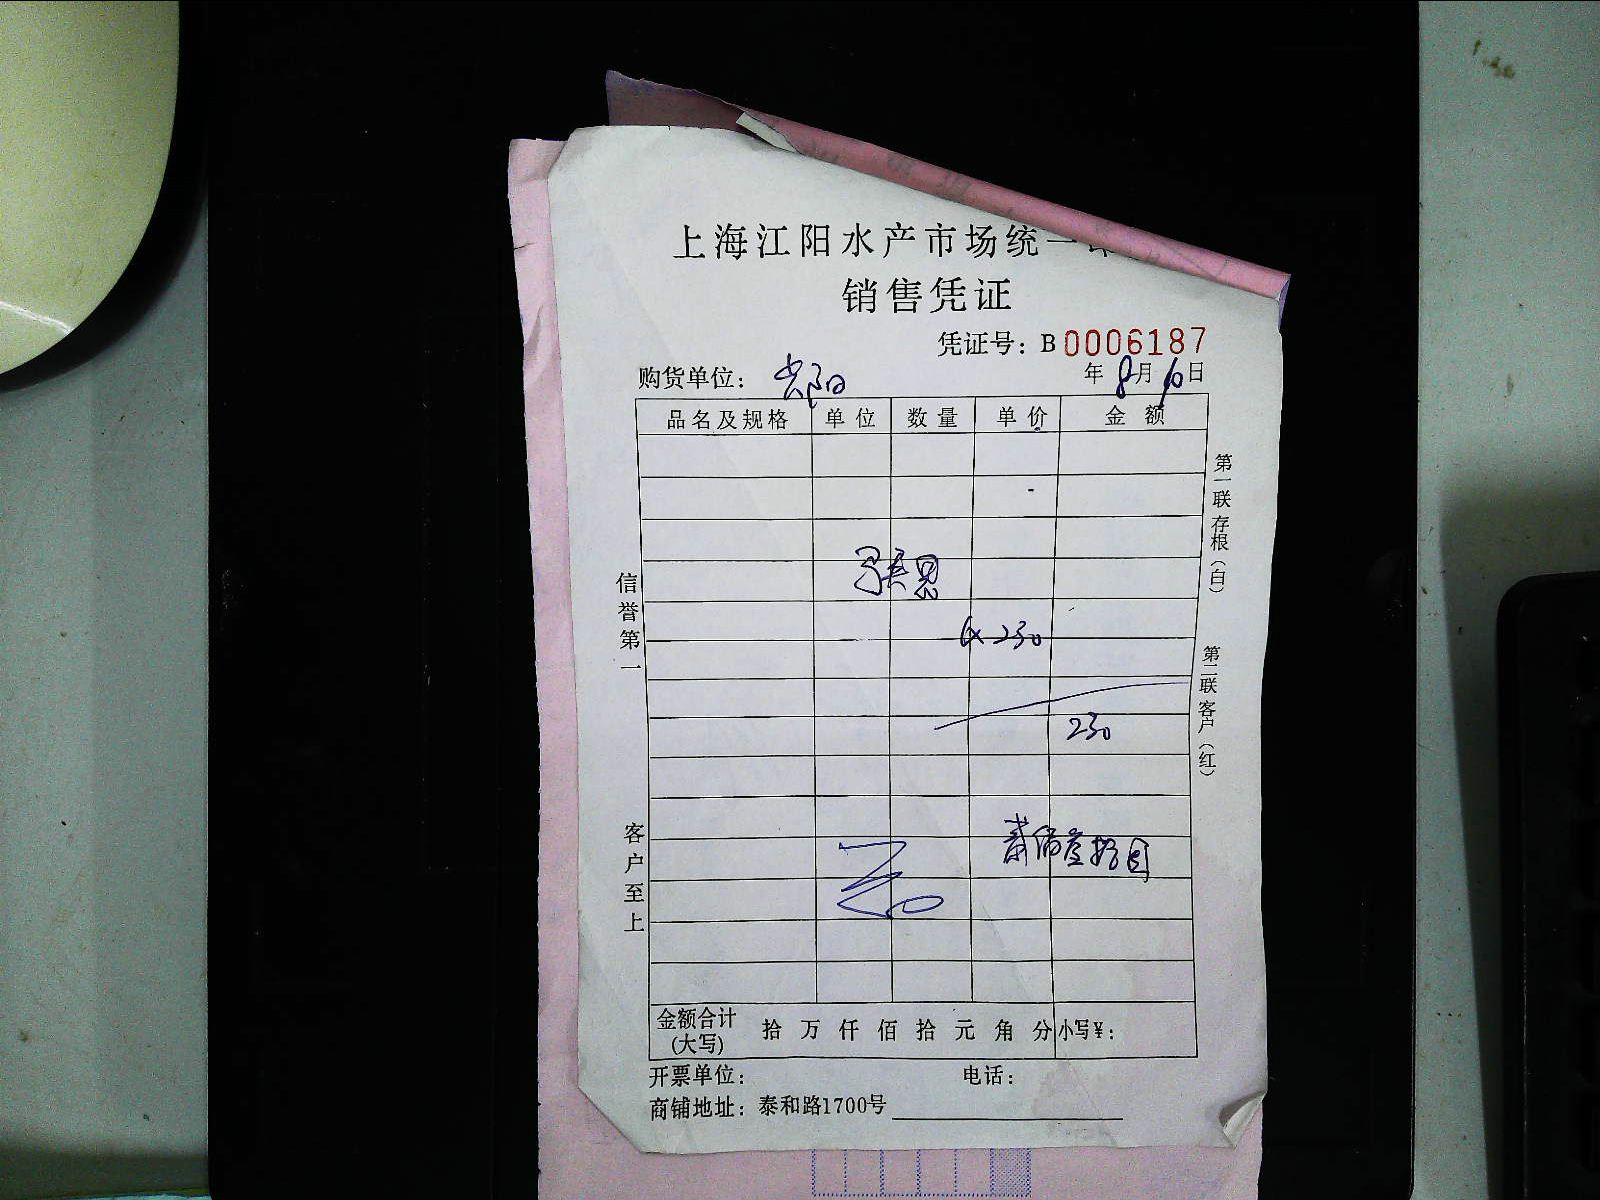 上海江阳水产市场统一
销售凭证
凭证号：B 0006187
购货单位： 年 8月10日
品名及规格 单位 数量 单价 金额
230
230
贰佰叁拾圆
金额合计(大写) 拾 万 仟 佰 拾 元 角 分 小写¥：
开票单位： 电话：
商铺地址：泰和路1700号
信誉第一
客户至上
第一联存根（白）
第二联客户（红）